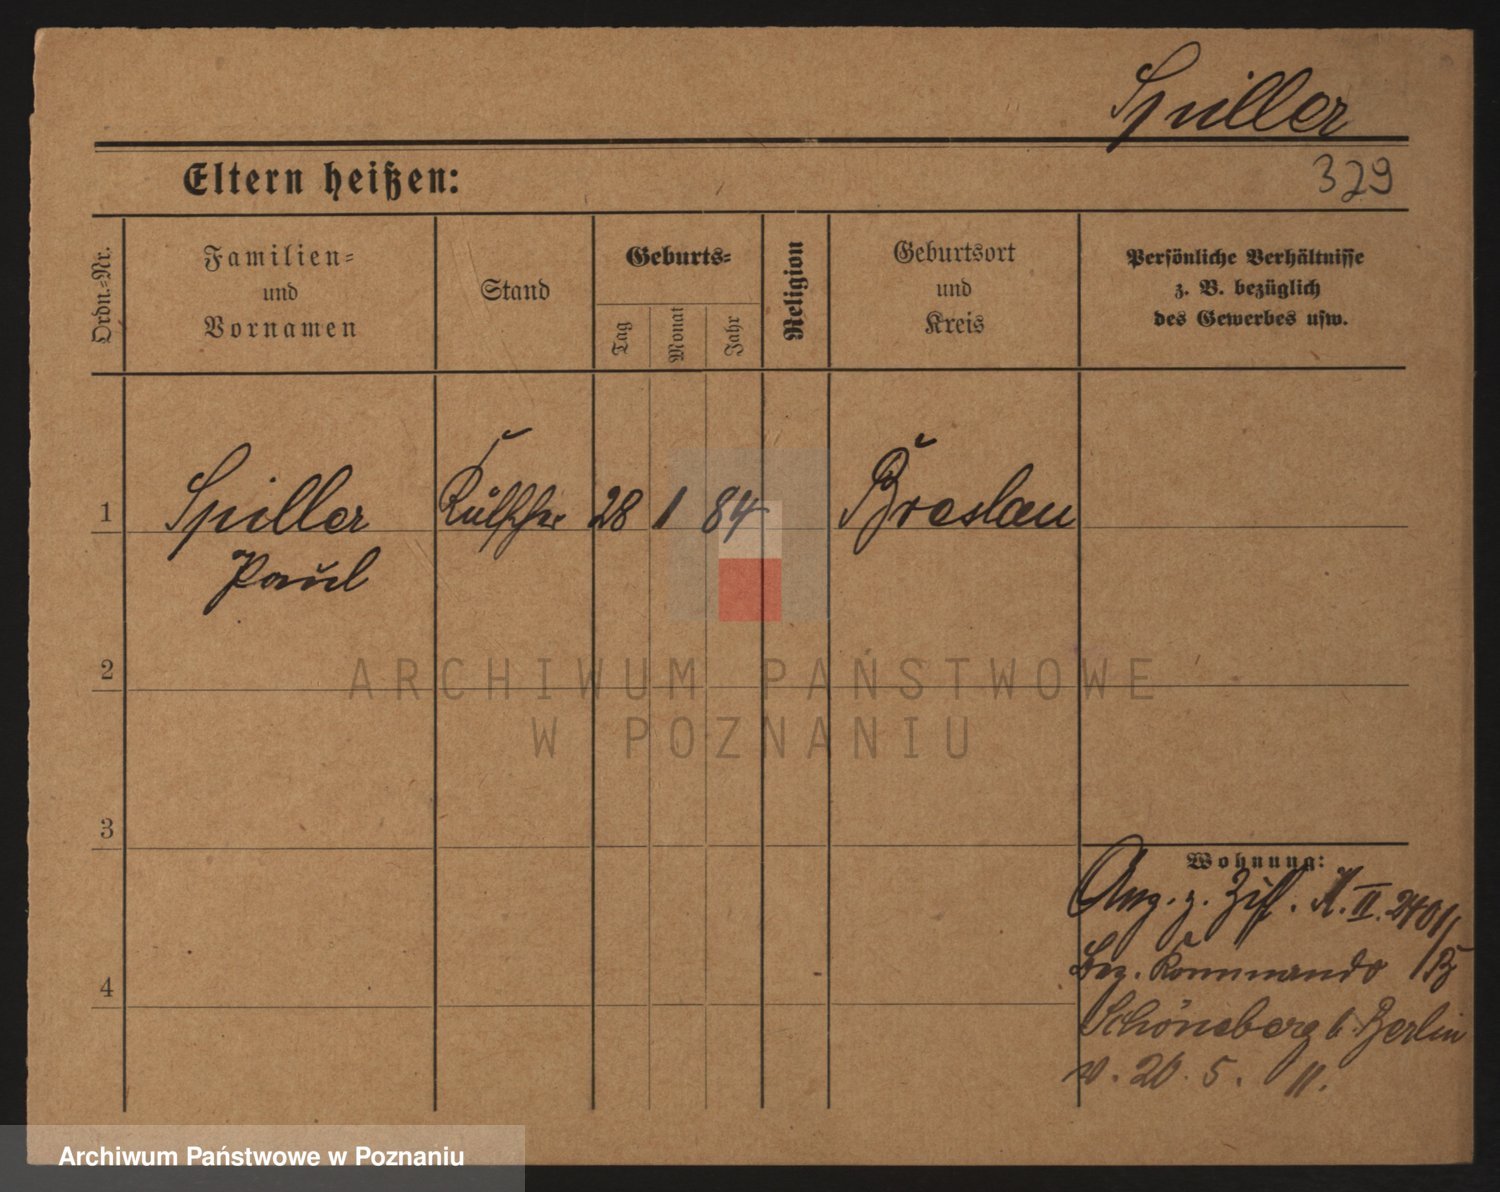 Spiller
Eltern heißen:
329
Ordn.-Nr.
Familien-
und
Vornamen
Stand
Geburts-
Tag
Monat
Jahr
Religion
Geburtsort
und
Kreis
Persönliche Verhältnisse
z. B. bezüglich
des Gewerbes usw.
1
Spiller
Paul
28 1 84
Breslau
2
ARCHIWUM PAŃSTWOWE
W POZNANIU
3
Wohnung:
Ang. z. Ziff. A. II. 2401/
Bez. Kommando
4
Schöneberg b. Berlin
v. 26. 5. 11.
Archiwum Państwowe w Poznaniu